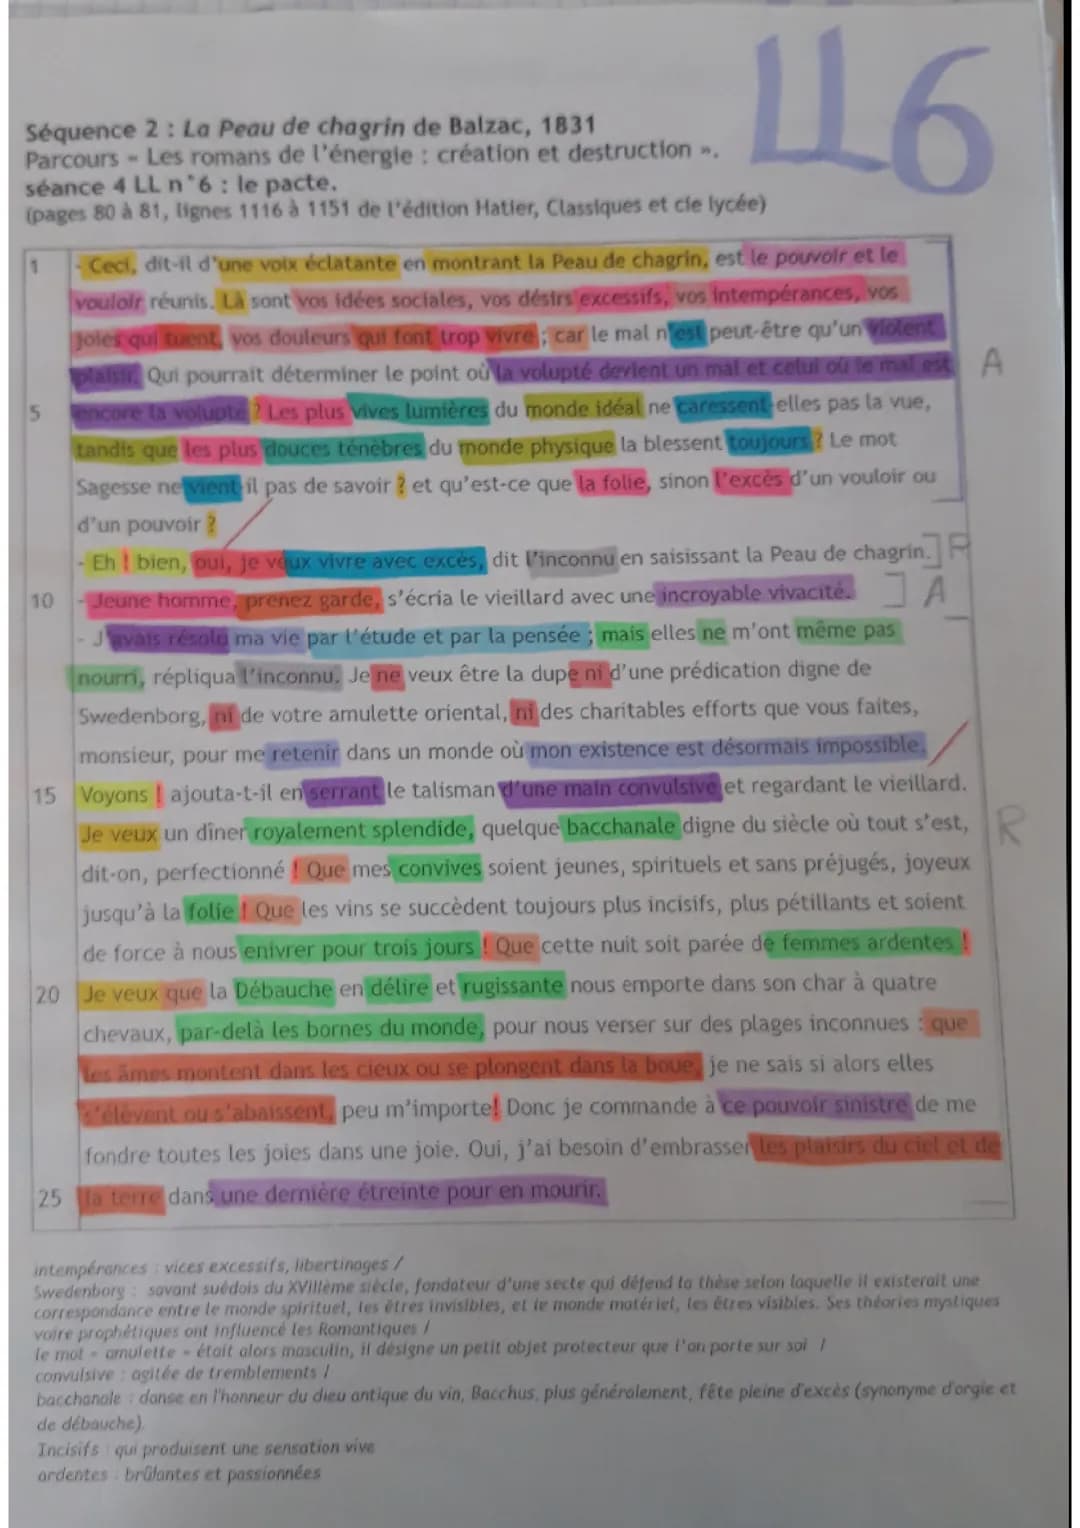 LL6
Séquence 2 : La Peau de chagrin de Balzac, 1831
Parcours « Les romans de l'énergie : création et destruction ».
séance 4 LL n°6 : le pacte.
(pages 80 à 81, lignes 1116 à 1151 de l'édition Hatier, Classiques et cie lycée)
1 - Ceci, dit-il d'une voix éclatante en montrant la Peau de chagrin, est le pouvoir et le
vouloir réunis. Là sont vos idées sociales, vos désirs excessifs, vos intempérances, vos
joies qui tuent, vos douleurs qui font trop vivre ; car le mal n'est peut-être qu'un violent
plaisir. Qui pourrait déterminer le point où la volupté devient un mal et celui où le mal est A
5 encore la volupté ? Les plus vives lumières du monde idéal ne caressent-elles pas la vue,
tandis que les plus douces ténèbres du monde physique la blessent toujours ? Le mot
Sagesse ne vient-il pas de savoir ? et qu'est-ce que la folie, sinon l'excès d'un vouloir ou
d'un pouvoir ?
- Eh ! bien, oui, je veux vivre avec excès, dit l'inconnu en saisissant la Peau de chagrin. R
10 - Jeune homme, prenez garde, s'écria le vieillard avec une incroyable vivacité. A
- J'avais résolu ma vie par l'étude et par la pensée ; mais elles ne m'ont même pas
nourri, répliqua l'inconnu. Je ne veux être la dupe ni d'une prédication digne de
Swedenborg, ni de votre amulette oriental, ni des charitables efforts que vous faites,
monsieur, pour me retenir dans un monde où mon existence est désormais impossible.
15 Voyons ! ajouta-t-il en serrant le talisman d'une main convulsive et regardant le vieillard.
Je veux un dîner royalement splendide, quelque bacchanale digne du siècle où tout s'est, R
dit-on, perfectionné ! Que mes convives soient jeunes, spirituels et sans préjugés, joyeux
jusqu'à la folie ! Que les vins se succèdent toujours plus incisifs, plus pétillants et soient
de force à nous enivrer pour trois jours ! Que cette nuit soit parée de femmes ardentes !
20 Je veux que la Débauche en délire et rugissante nous emporte dans son char à quatre
chevaux, par-delà les bornes du monde, pour nous verser sur des plages inconnues : que
les âmes montent dans les cieux ou se plongent dans la boue, je ne sais si alors elles
s'élèvent ou s'abaissent, peu m'importe! Donc je commande à ce pouvoir sinistre de me
fondre toutes les joies dans une joie. Oui, j'ai besoin d'embrasser les plaisirs du ciel et de
25 la terre dans une dernière étreinte pour en mourir.
intempérances : vices excessifs, libertinages /
Swedenborg : savant suédois du XVIIIème siècle, fondateur d'une secte qui défend la thèse selon laquelle il existerait une
correspondance entre le monde spirituel, les êtres invisibles, et le monde matériel, les êtres visibles. Ses théories mystiques
voire prophétiques ont influencé les Romantiques /
le mot « amulette » était alors masculin, il désigne un petit objet protecteur que l'on porte sur soi /
convulsive : agitée de tremblements /
bacchanale : danse en l'honneur du dieu antique du vin, Bacchus, plus généralement, fête pleine d'excès (synonyme d'orgie et
de débauche).
Incisifs : qui produisent une sensation vive
ardentes : brûlantes et passionnées